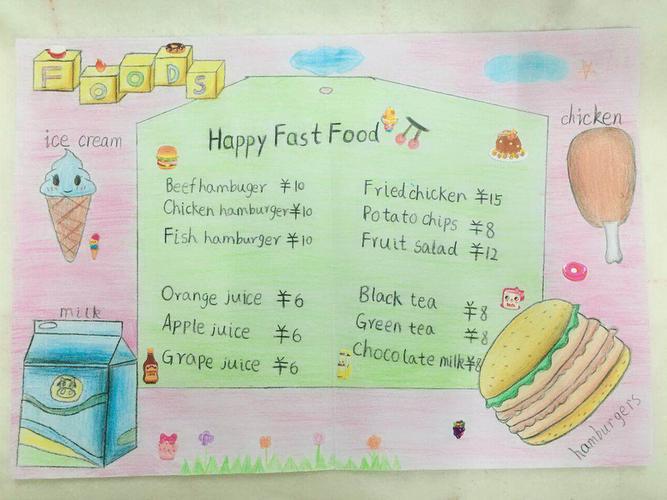 FOODS
ice cream
chicken
Happy Fast Food
Beef hambuger ¥10
Chicken hamburger ¥10
Fish hamburger ¥10
Fried chicken ¥15
Potato chips ¥8
Fruit salad ¥12
Orange juice ¥6
Apple juice ¥6
Grape juice ¥6
Black tea ¥8
Green tea ¥8
Chocolate milk ¥8
milk
hamburgers